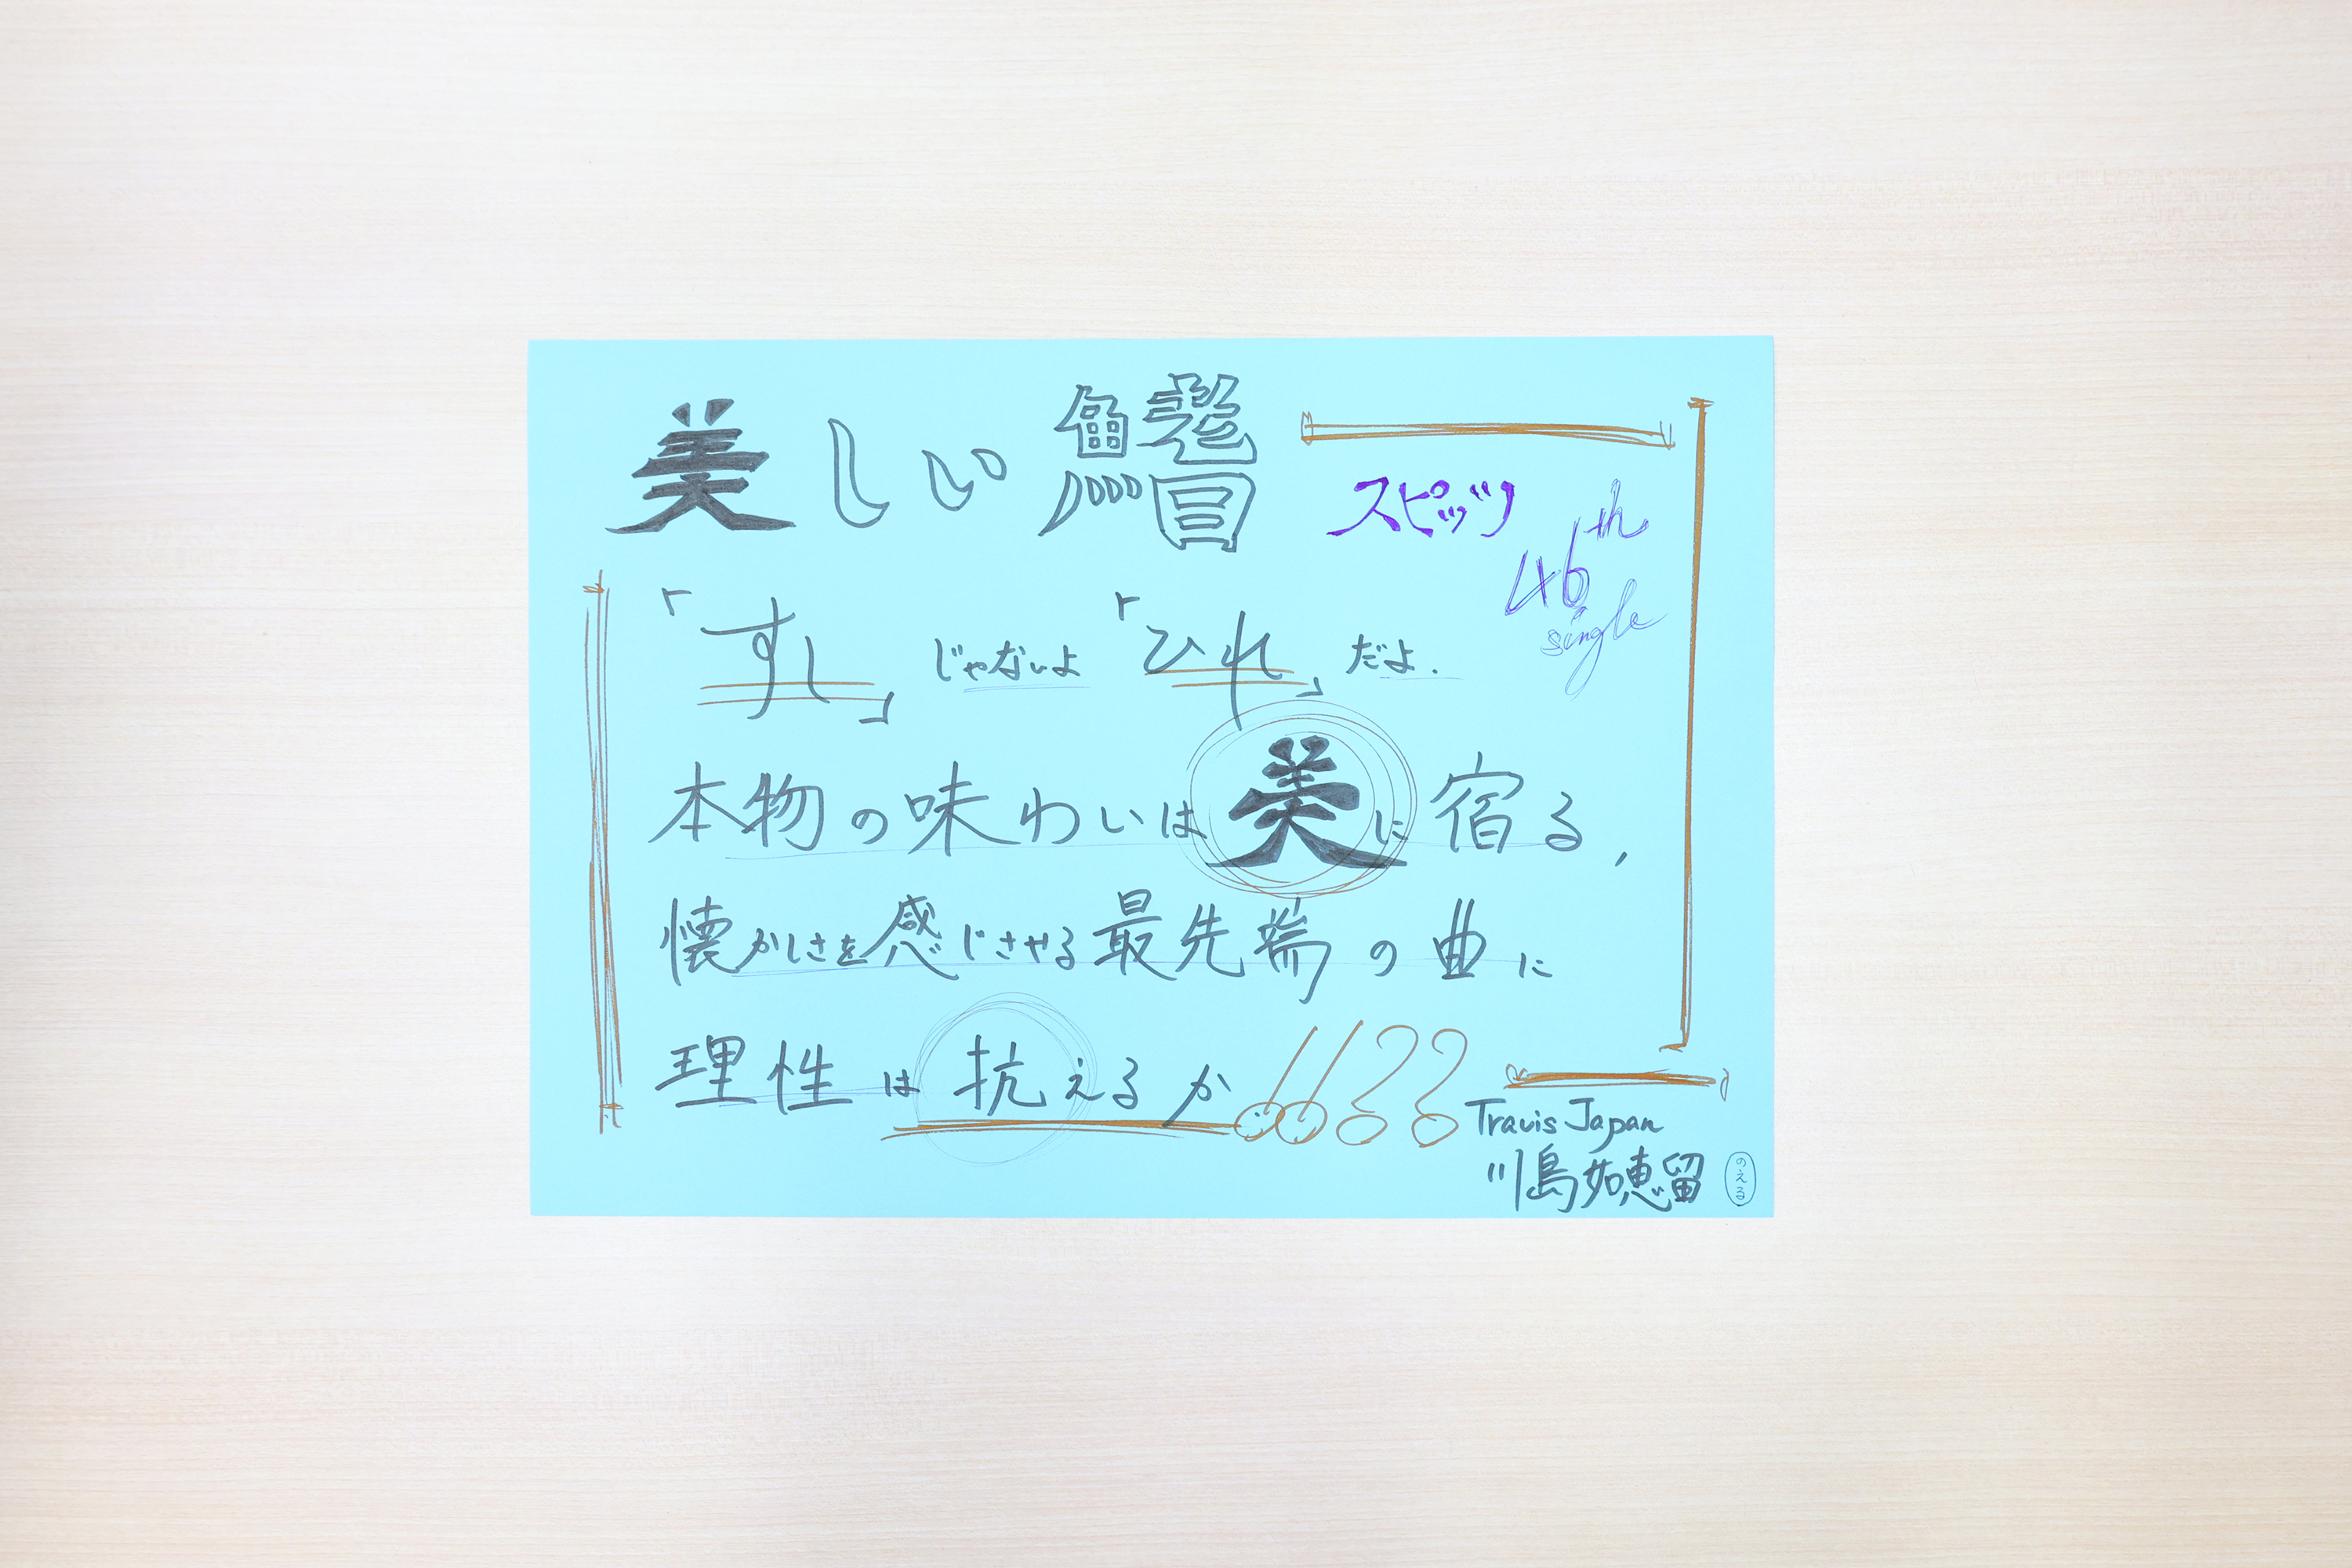 美しい鰭
スピッツ
46th
single
「すし」じゃないよ「ひれ」だよ.
本物の味わいは美に宿る,
懐かしさを感じさせる最先端の曲に
理性は抗えるか!!??
Travis Japan
川島如恵留
のえる